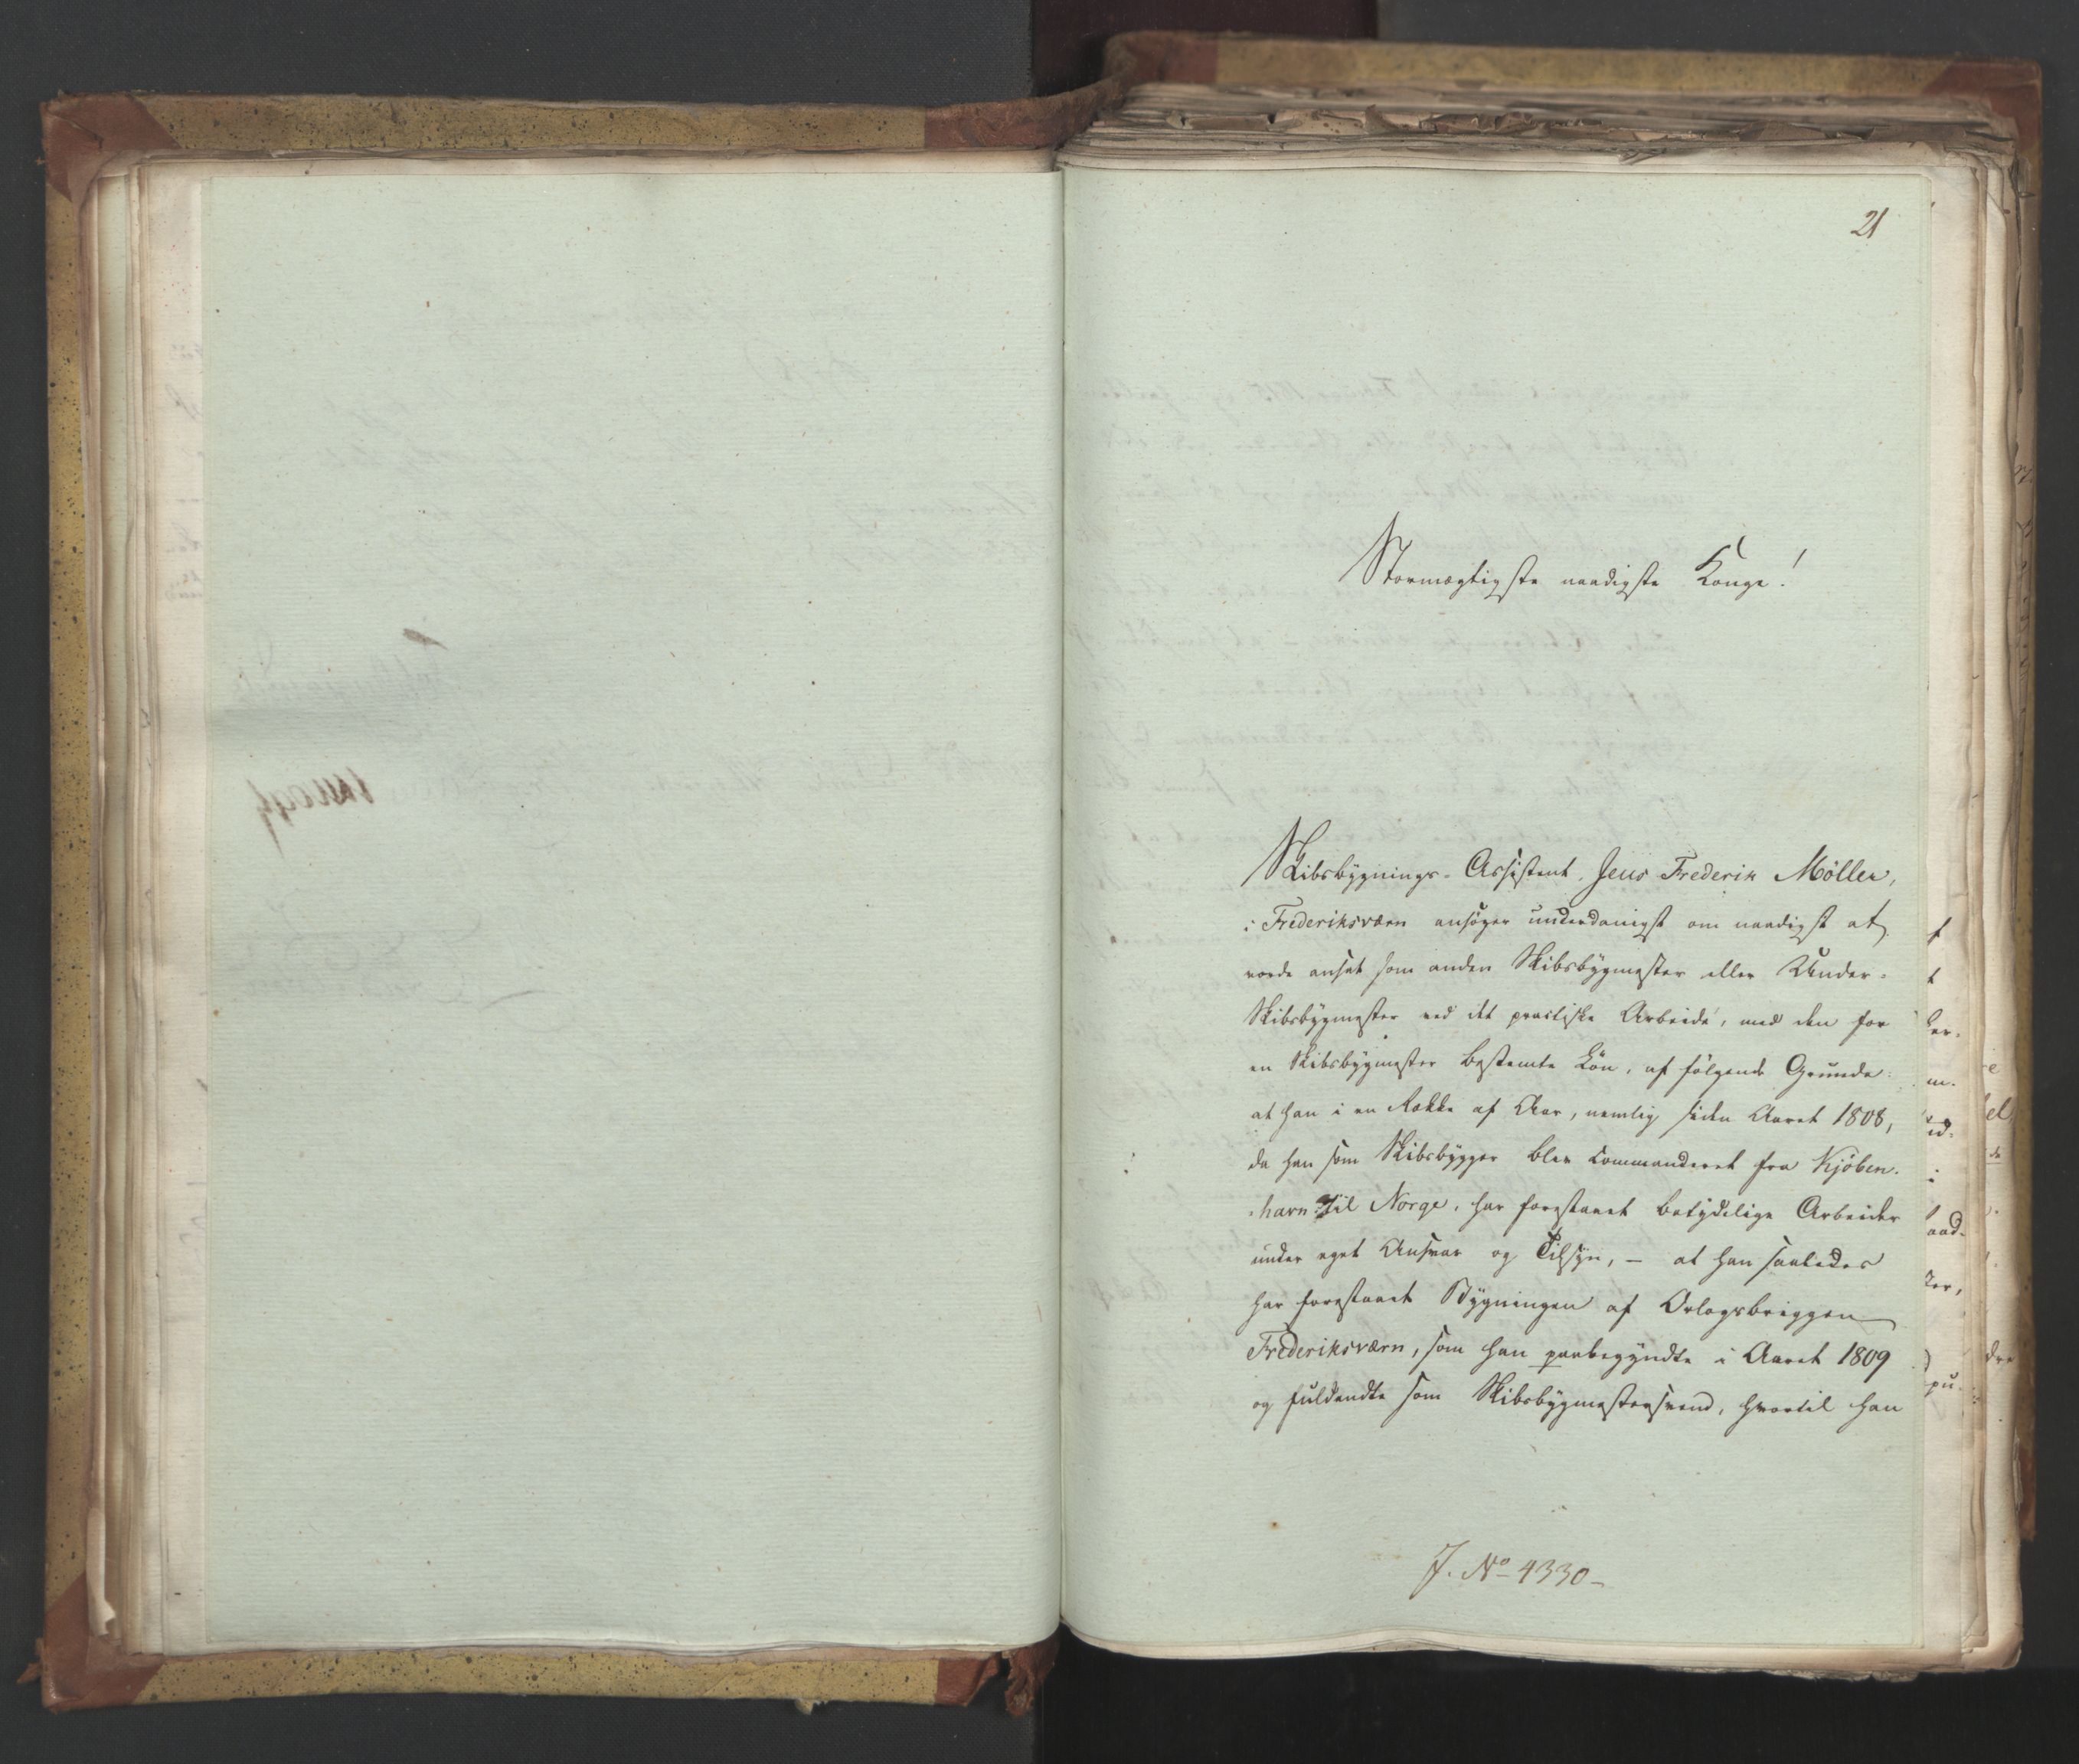 21
Stormægtigste naadigste Konge!
Skibsbygnings-Assistent Jens Frederik Möller,
i Frederiksværn ansøger underdanigst om naadigst at
vorde ansat som anden Skibsbygmester eller Under-
Skibsbygmester ved det practiske Arbeide, med den for
en Skibsbygmester bestemte Lön, af følgende Grunde:
at han i en Række af Aar, nemlig siden Aaret 1808,
da han som Skibsbygger blev commanderet fra Kjöben-
havn til Norge, har forestaaet betydelige Arbeider
under eget Ansvar og Tilsyn, — at han saaledes
har forestaaet Bygningen af Orlogsbriggen
Frederiksværn, som han paabegyndte i Aaret 1809
og fuldendte som Skibsbygmestersvend, hvortil han
J. No 4330-